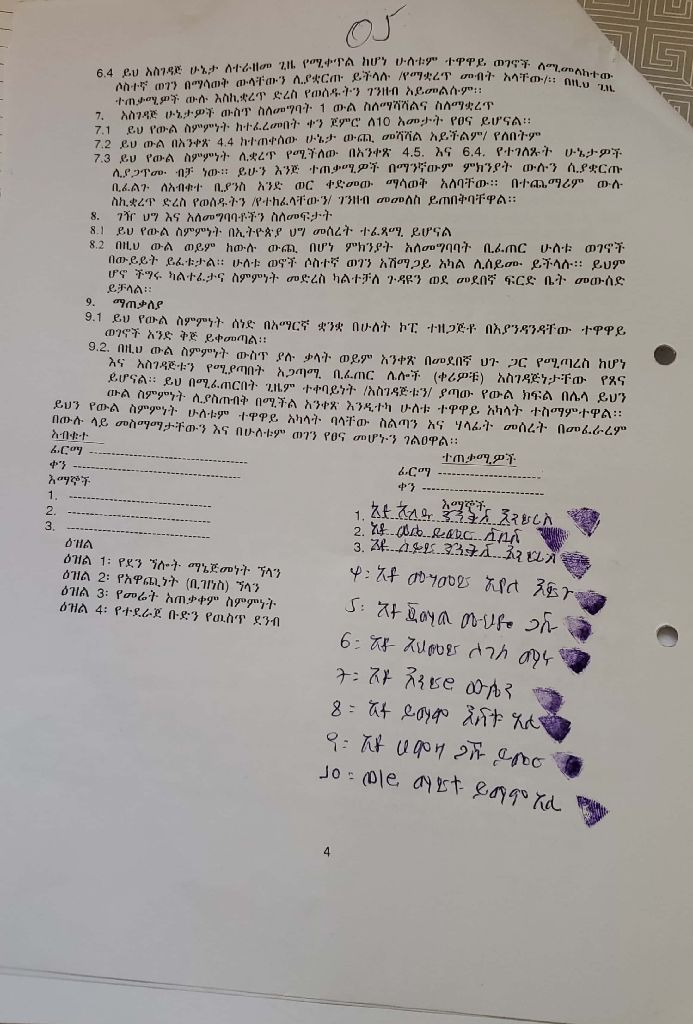 05
6.4 ይህ አስገዳጅ ሁኔታ ለተራዘመ ጊዜ የሚቀጥል ከሆነ ሁለቱም ተዋዋይ ወገኖች ለሚመለከተው
ሶስተኛ ወገን በማሳወቅ ውላቸውን ሊያቋርጡ ይችላሉ /የማቋረጥ መብት አላቸው/፡፡ በዚህ ጊዜ
ተጠቃሚዎች ውሉ እስኪቋረጥ ድረስ የወሰዱትን ገንዘብ አይመልሱም፡፡
7. አስገዳጅ ሁኔታዎች ውስጥ ስለመግባት 1 ውል ስለማሻሻልና ስለማቋረጥ
7.1 ይህ የውል ስምምነት ከተፈረመበት ቀን ጀምሮ ለ10 አመታት የፀና ይሆናል፡፡
7.2 ይህ ውል በአንቀጽ 4.4 ከተጠቀሰው ሁኔታ ውጪ መሻሻል አይችልም/ የለበትም
7.3 ይህ የውል ስምምነት ሊቋረጥ የሚችለው በአንቀጽ 4.5. እና 6.4. የተገለጹት ሁኔታዎች
ሊያጋጥሙ ብቻ ነው፡፡ ይሁን እንጅ ተጠቃሚዎች በማንኛውም ምክንያት ውሉን ሲያቋርጡ
ቢፈልጉ ለአብቁተ ቢያንስ አንድ ወር ቀድመው ማሳወቅ አለባቸው፡፡ በተጨማሪም ውሉ
ስኪቋረጥ ድረስ የወሰዱትን /የተከፈላቸውን/ ገንዘብ መመለስ ይጠበቅባቸዋል፡፡
8. ገዥ ህግ እና አለመግባባቶችን ስለመፍታት
8.1 ይህ የውል ስምምነት በኢትዮጵያ ህግ መሰረት ተፈጻሚ ይሆናል
8.2 በዚህ ውል ወይም ከውሉ ውጪ በሆነ ምክንያት አለመግባባት ቢፈጠር ሁለቱ ወገኖች
በውይይት ይፈቱታል፡፡ ሁለቱ ወኖች ሶስተኛ ወገን አሸማጋይ አካል ሊሰይሙ ይችላሉ፡፡ ይህም
ሆኖ ችግሩ ካልተፈታና ስምምነት መድረስ ካልተቻለ ጉዳዩን ወደ መደበኛ ፍርድ ቤት መውሰድ
ይቻላል፡፡
9. ማጠቃለያ
9.1 ይህ የውል ስምምነት ሰነድ በአማርኛ ቋንቋ በሁለት ኮፒ ተዘጋጅቶ በእያንዳንዳቸው ተዋዋይ
ወገኖች አንድ ቅጅ ይቀመጣል፡፡
9.2. በዚህ ውል ስምምነት ውስጥ ያሉ ቃላት ወይም አንቀጽ በመደበኛ ህጉ ጋር የሚጣረስ ከሆነ
እና አስገዳጅቱን የሚያጣበት አጋጣሚ ቢፈጠር ሌሎች (ቀሪዎቹ) አስገዳጅነታቸው የጸና
ይሆናል፡፡ ይህ በሚፈጠርበት ጊዜም ተቀባይነት /አስገዳጅቱን/ ያጣው የውል ክፍል በሌላ ይህን
ውል ስምምነት ሊያስጠብቅ በሚችል አንቀጽ እንዲተካ ሁለቱ ተዋዋይ አካላት ተስማምተዋል፡፡
ይህን የውል ስምምነት ሁለቱም ተዋዋይ አካላት ባላቸው ስልጣን እና ሃላፊት መሰረት በመፈራረም
በውሉ ላይ መስማማታቸውን እና በሁለቱም ወገን የፀና መሆኑን ገልፀዋል፡፡
አብቁተ
ፊርማ
ቀን
እማኞች
1.
2.
3.
ዕዝል
ዕዝል 1፡ የደን ኘሎት ማኔጅመነት ኘላን
ዕዝል 2፡ የአዋጪነት (ቢዝነስ) ኘላን
ዕዝል 3፡ የመሬት አጠቃቀም ስምምነት
ዕዝል 4፡ የተደራጀ ቡድን የዉስጥ ደንብ
ተጠቃሚዎች
ፊርማ
ቀን
እማኞች
1. አቶ
2. አቶ
3. አቶ
፬፡ አቶ መሃመድ
5፡ አቶ
6፡ አቶ አህመድ
7፡ አቶ
8፡ አቶ ይማም
፱፡ አቶ ሀምዛ
10፡ ወ/ሮ ይማም
4